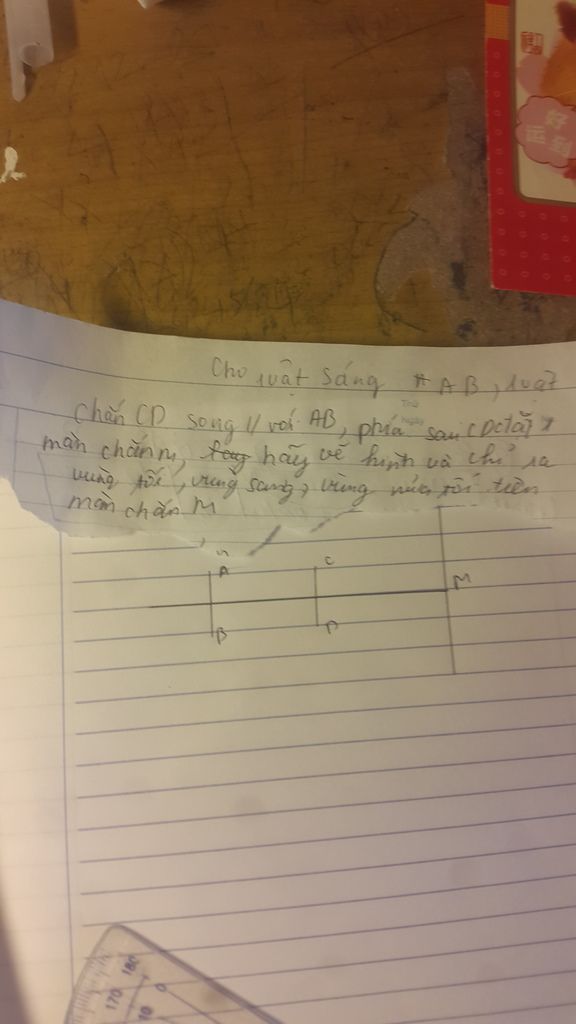 好
运到
Cho vật sáng AB, vật
chắn CD song // với AB, phía sau CD đặt 1
màn chắn M, hãy vẽ hình và chỉ ra
vùng tối, vùng sáng, vùng nửa tối trên
màn chắn M
A C
M
B D
180
170
10
0